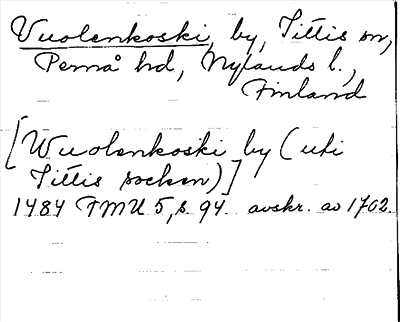 Vuolenkoski, by, Sittis sn,
Pernå hd, Nylands l.,
Finland
[Wuolenkoski by (uti
Sittis socken)]
1484 FMU 5, s. 94. avskr. av 1702.